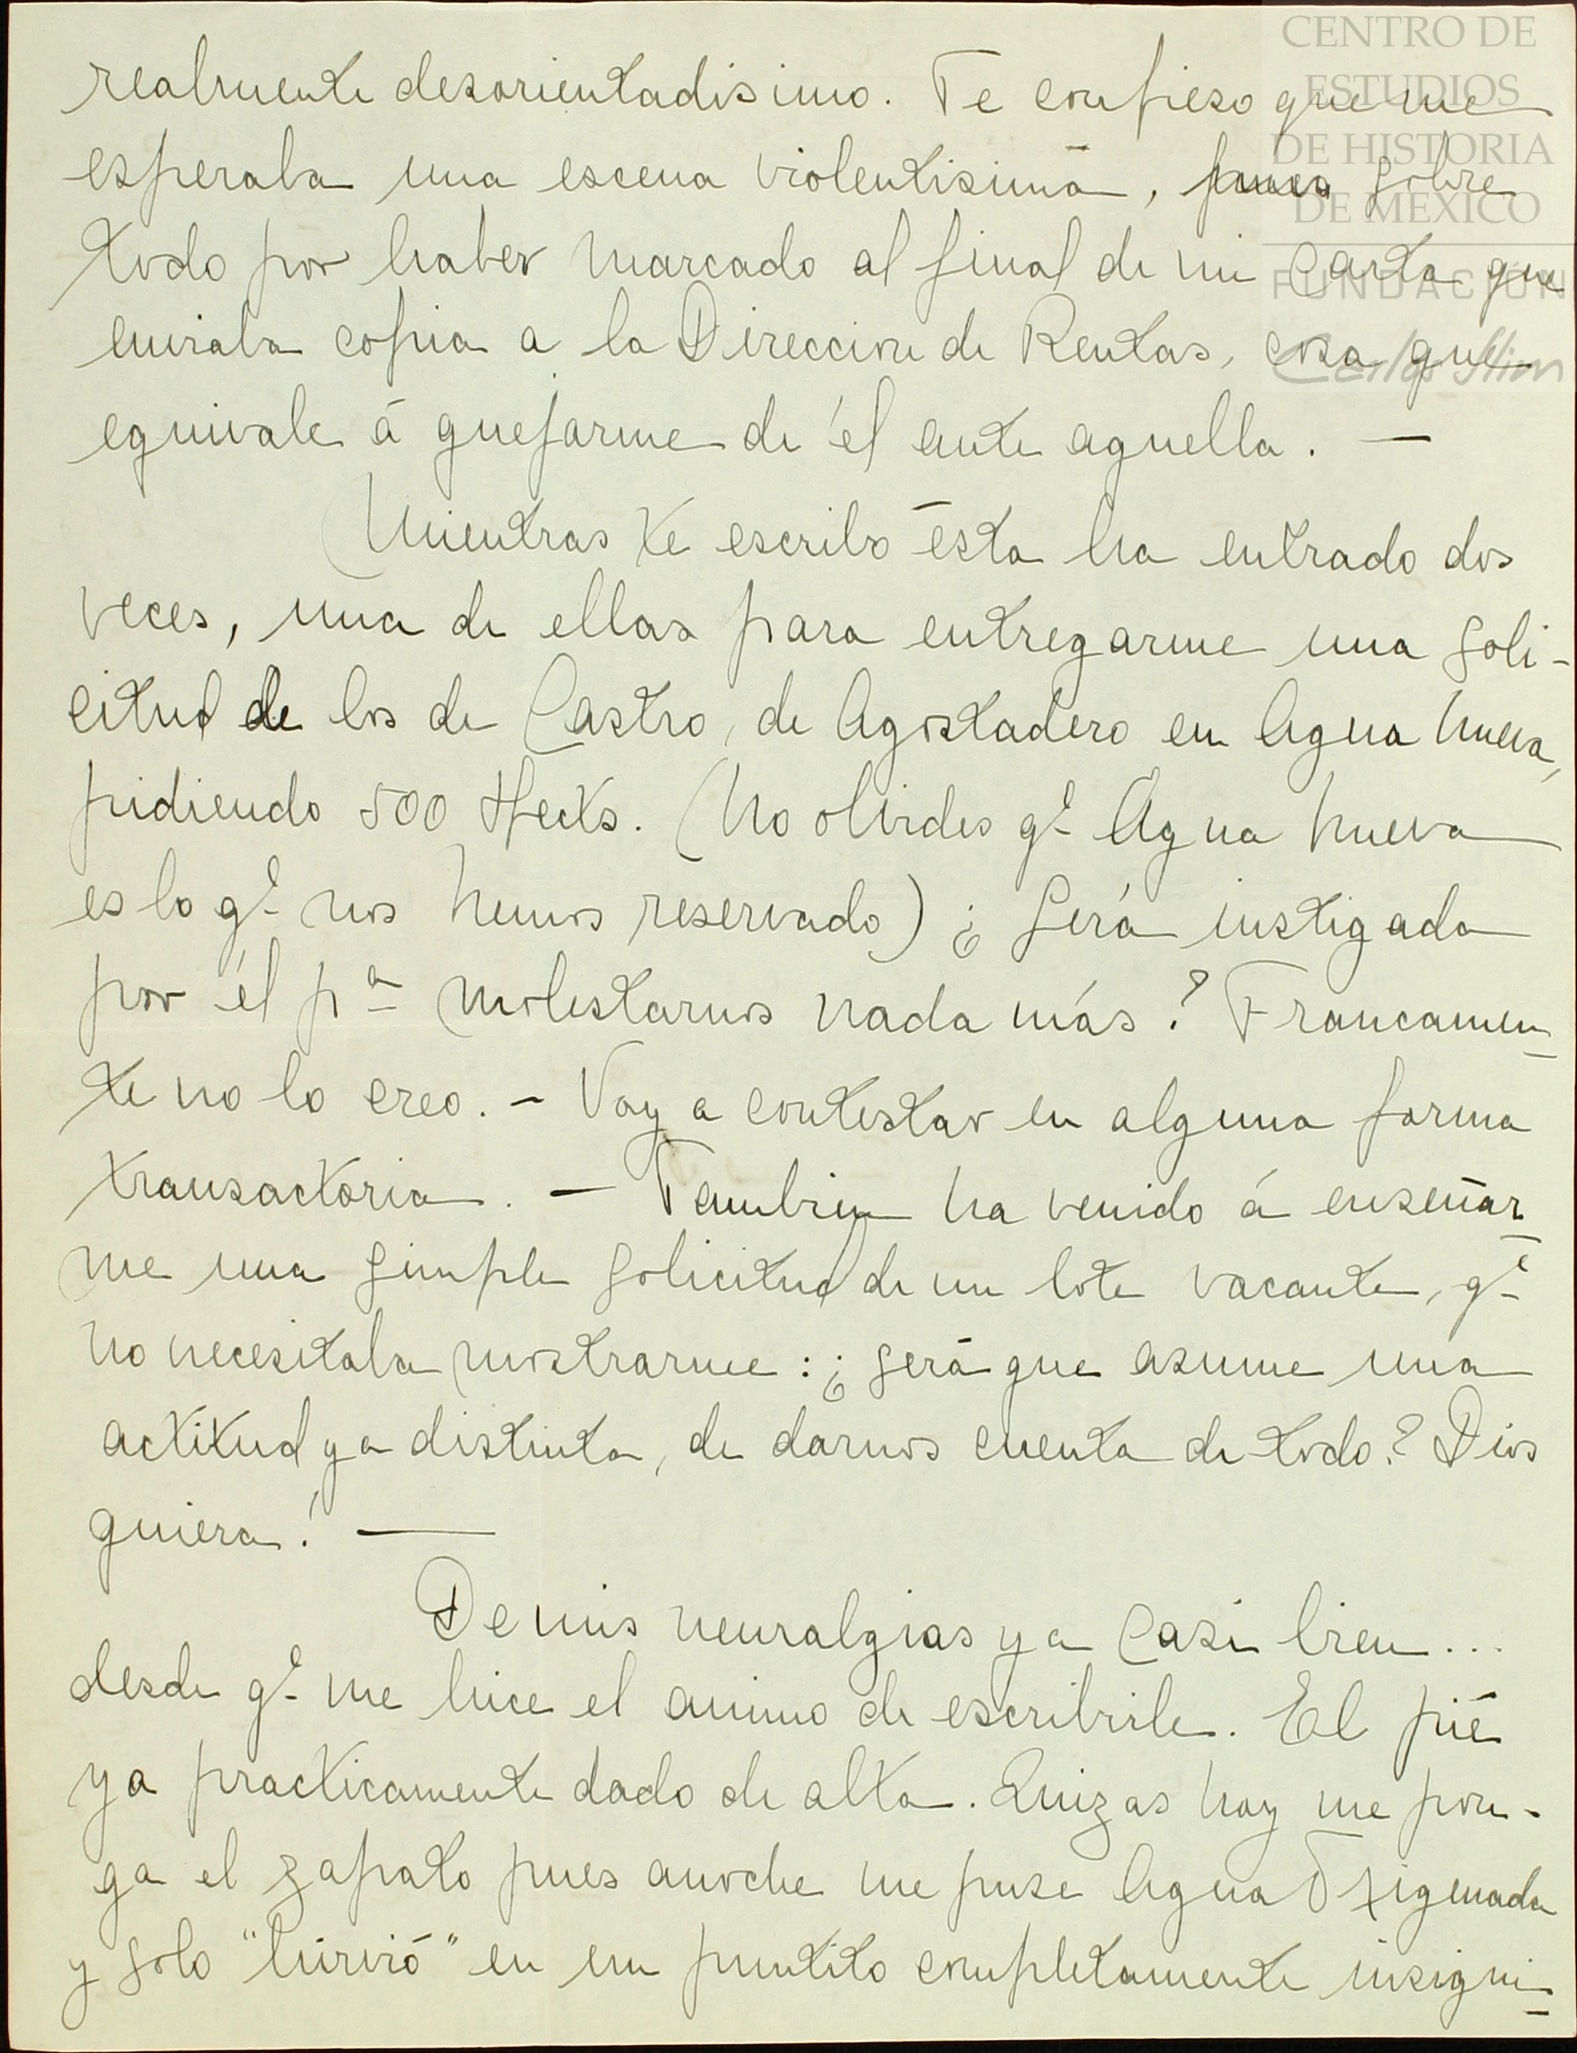 CENTRO DE
ESTUDIOS
DE HISTORIA
DE MEXICO
FUNDACIÓN
Carlos Slim
realmente desorientadisimo. Te confieso que me
esperaba una escena violentisima, pues sobre
todo por haber marcado al final de mi carta que
enviaba copia a la Direccion de Rentas, cosa que
equivale á quejarme de él ante aquella. —
Mientras te escribo ésta ha entrado dos
veces, una de ellas para entregarme una soli-
citud de los de Castro, de Agostadero en Agua nueva,
pidiendo 500 Hects. (No olvides qe Agua nueva
es lo qe nos hemos reservado) ¿Será instigada
por él pa molestarnos nada más? Francamen-
te no lo creo. — Voy a contestar en alguna forma
transactoria. — Tambien ha venido á enseñar-
me una simple solicitud de un lote vacante, qe
no necesitaba mostrarme: ¿será que asume una
actitud ya distinta, de darnos cuenta de todo? Dios
quiera! —
De mis neuralgias ya casi bien...
desde qe me hice el animo de escribirle. El pié
ya practicamente dado de alta. Quizas hoy me pon-
ga el zapato pues anoche me puse Agua Oxigenada
y solo "hirvió" en un puntito completamente insigni-